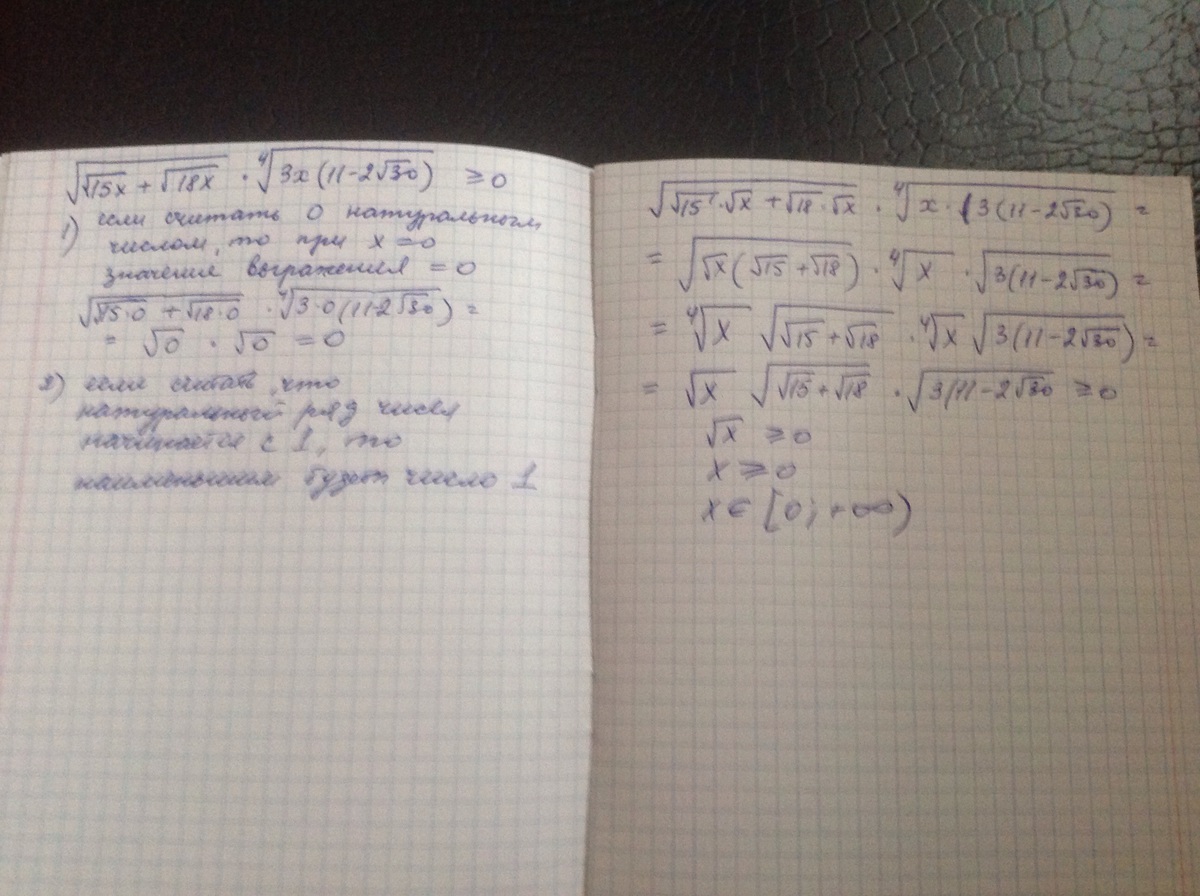 √(√15x + √18x) · ⁴√(3x(11-2√30)) ≥ 0
1) если считать 0 натуральным
числом, то при x = 0
значение выражения = 0
√(√15·0 + √18·0) · ⁴√(3·0(11-2√30)) =
= √0 · √0 = 0
2) если считать, что
натуральный ряд чисел
начинается с 1, то
наименьшим будет число 1
√(√15·√x + √18·√x) · ⁴√(x·(3(11-2√30)) =
= √(√x(√15 + √18)) · ⁴√x · √(3(11-2√30)) =
= ⁴√x √(√15 + √18) · ⁴√x √(3(11-2√30)) =
= √x √(√15 + √18) · √(3(11-2√30) ≥ 0
√x ≥ 0
x ≥ 0
x ∈ [0; +∞)